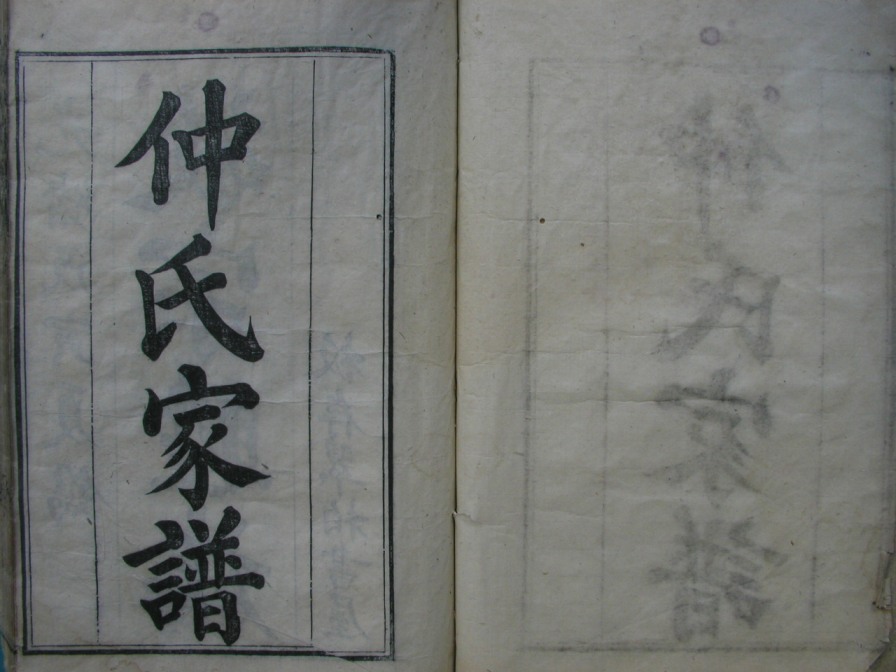 仲氏家譜